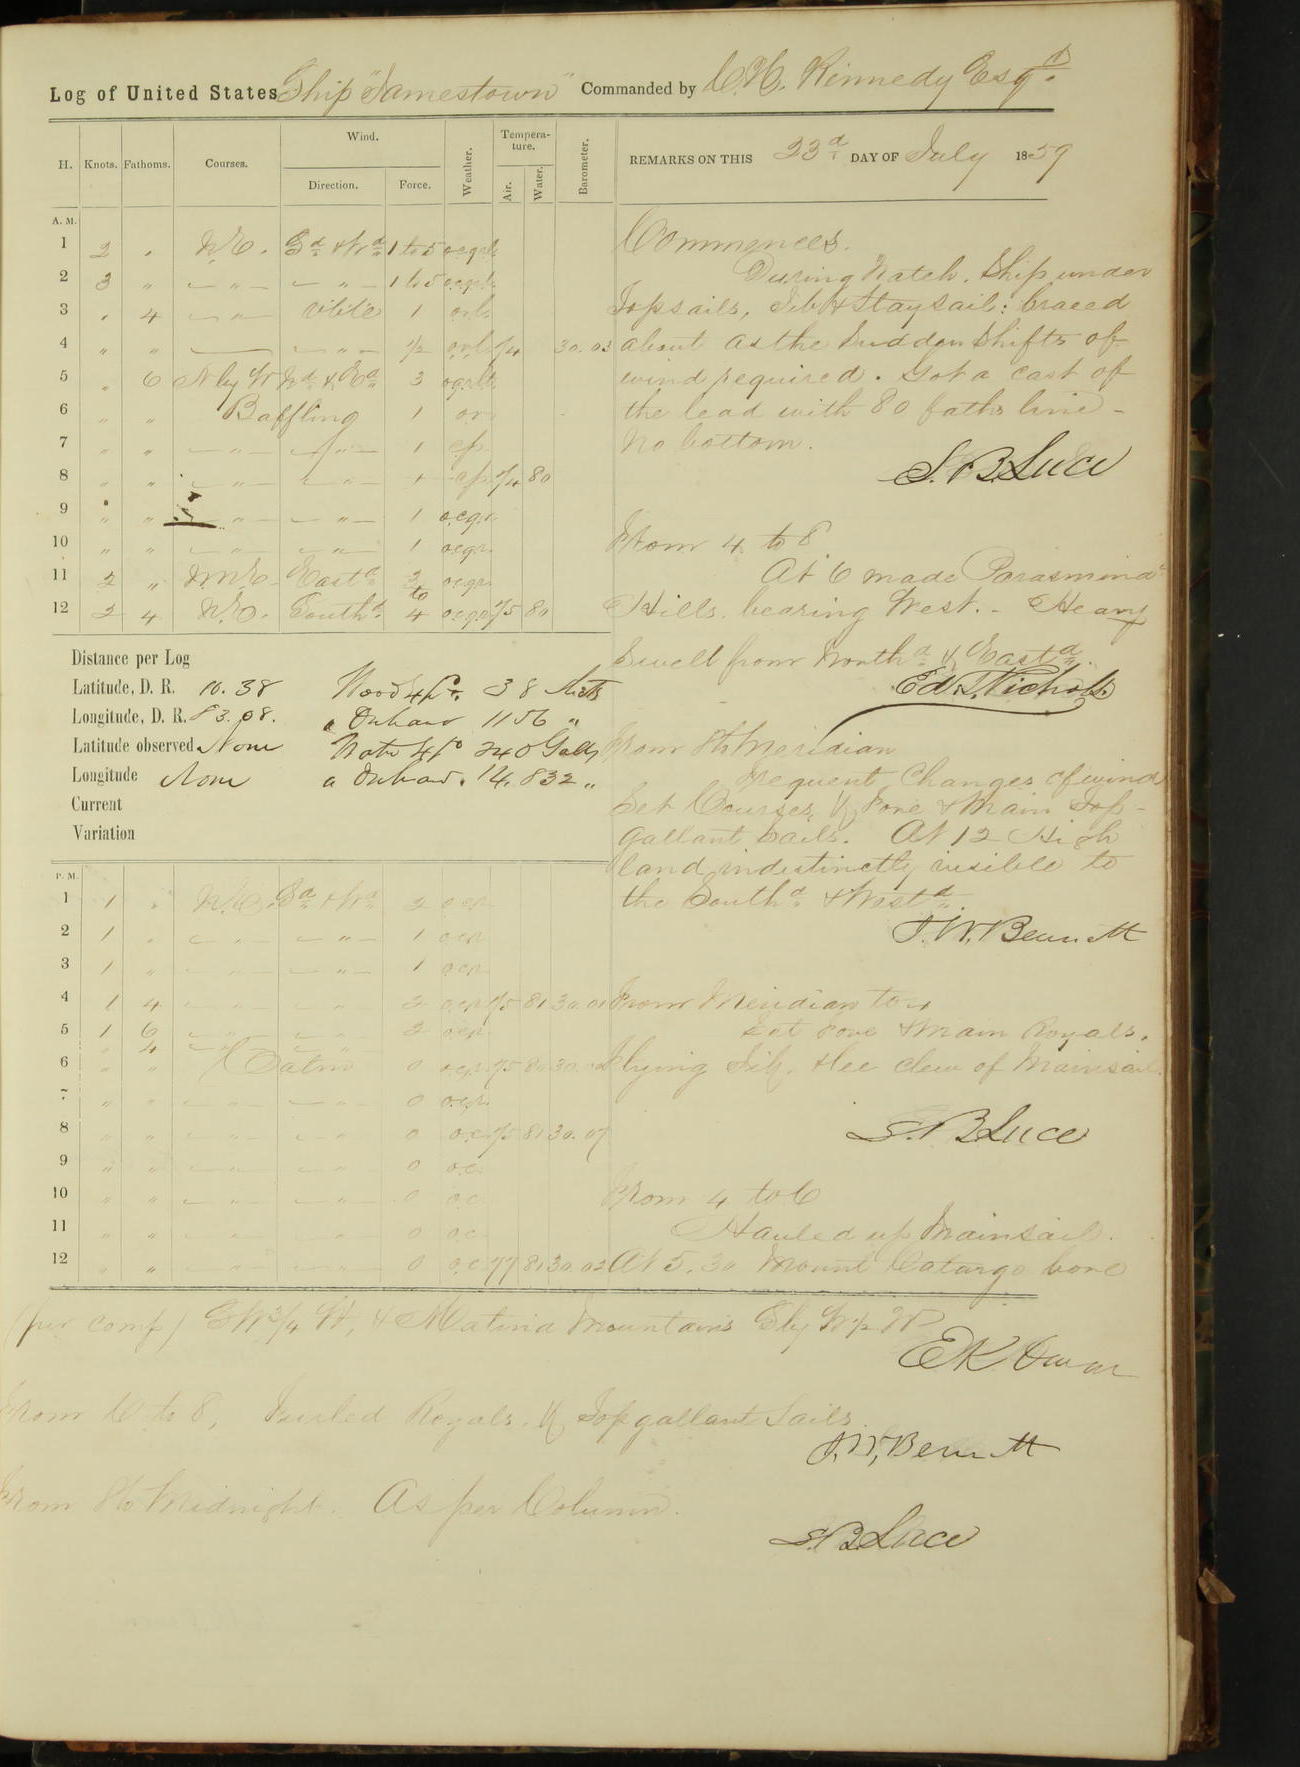 Log of United States Ship "Jamestown" Commanded by C.H. Kennedy Esqr.
H. Knots. Fathoms. Courses. Wind. Direction. Force. Weather. Tempera-ture. Air. Water. Barometer. REMARKS ON THIS 23d DAY OF July 1859
A. M.
1 2 . N.E. Sd & Wd 1 to 5 o.c.q.r.l.
2 3 " " " 1 to 5 o.c.q.r.l.
3 . 4 " vble 1 o.r.l.
4 " " " 1/2 o.r.l. 74 30.03
5 " 6 N by W Nd & Ed 3 o.q.r.l.
6 " " Baffling 1 o.r.
7 " " " " 1
8 " " " " 1 74 80
9 " " " " 1 o.c.q.r.
10 " " " " 1 o.c.q.r.
11 2 " N.N.E. Eastd 3 o.c.q.r.
12 2 4 N.E. Southd to 4 o.c.q.r. 75 80
Commences.
During Watch. Ship under
Topsails, Jib & Staysail: braced
about as the sudden shifts of
wind required. Got a cast of
the lead with 80 faths line -
No bottom.
S. B. Luce
From 4 to 8
At 6 made
Hills bearing West. - Heavy
Swell from Northd & Eastd.
Ed. T. Nichols
From 8 to Meridian
Frequent Changes of wind
Set Courses, & Fore & Main Top-
gallant Sails. At 12 High
land indistinctly visible to
the Southd & Westd.
J. W. Bennett
Distance per Log
Latitude, D. R. 10.38 Wood 38 Sticks
Longitude, D. R. 83.08. " Onboard 1156 "
Latitude observed None Water 240 Galls
Longitude None " Onboard. 14.832 "
Current
Variation
P. M.
1 1 . N.E. Sd & Wd 2 o.c.r.
2 1 . " " 1 o.c.r.
3 1 " " " 1 o.c.r.
4 1 4 " " 2 o.c.r. 75 81 30.01
5 1 6 " " 2 o.c.r.
4
6 " " Calm 0 o.c.r. 75 80 30.02
7 " " " " 0 o.c.r.
8 " " " " 0 o.c. 75 81 30.07
9 " " " " 0 o.c.
10 " " " " 0 o.c.
11 " " " " 0 o.c.
12 " " " " 0 o.c. 77 81 30.02
From Meridian to 4
Set Fore & Main Royals.
Flying Jib, & lee clew of Mainsail.
S. B. Luce
From 4 to 6
Hauled up Mainsail.
At 5.30 Mount bore
(per comp) SW 3/4 W, & Mountains
E K Owen
From 6 to 8, Furled Royals. & Topgallant Sails
J. W. Bennett
From 8 to Midnight. As per Column.
S. B. Luce